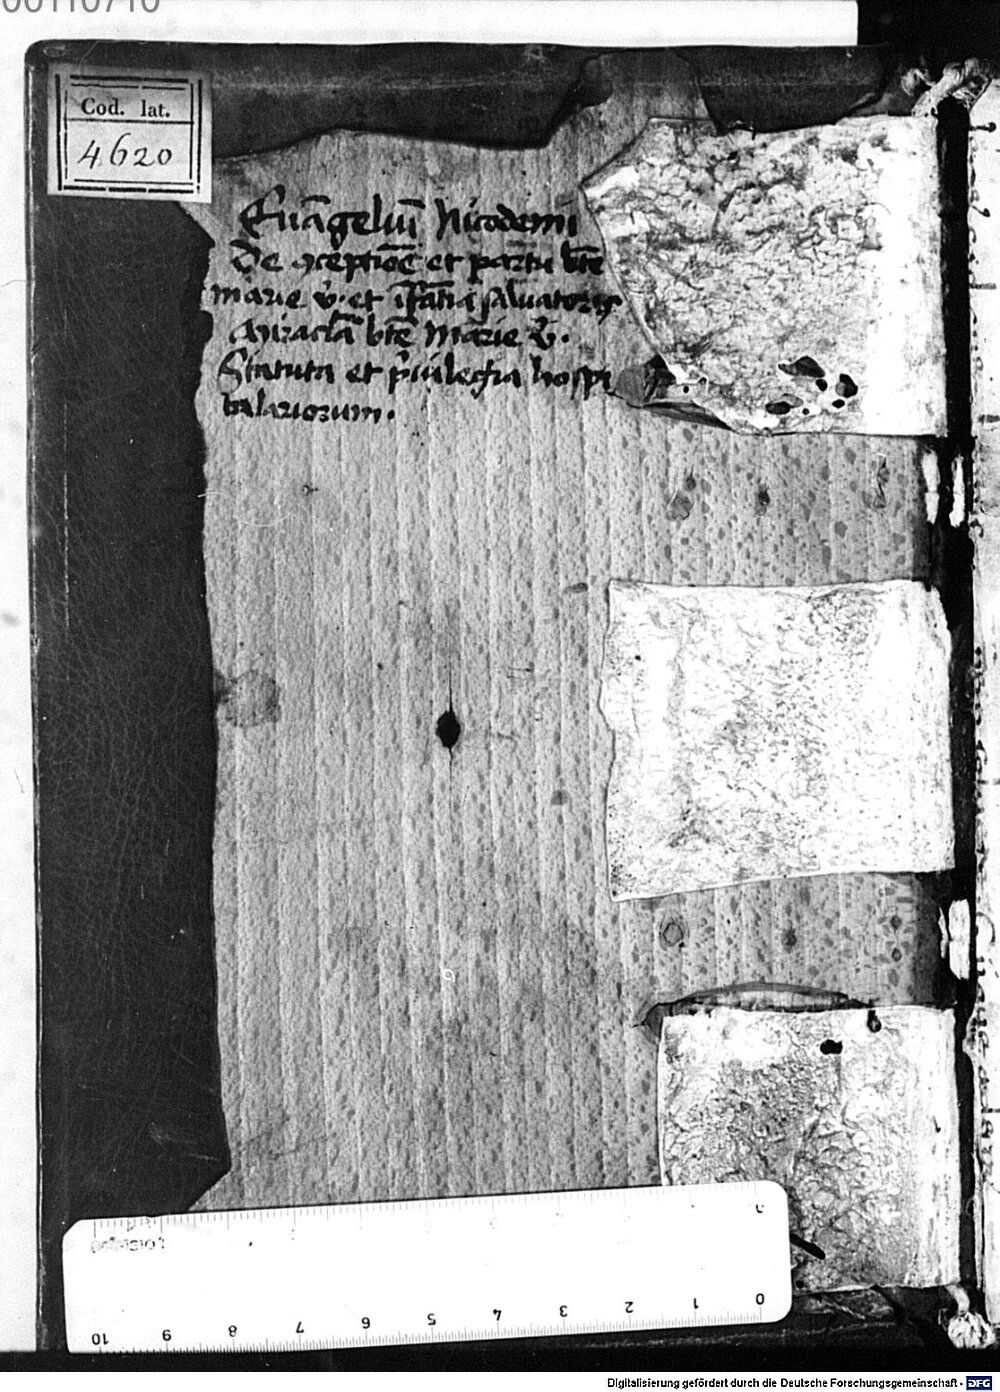 00110710
Cod. lat.
4620
Euāgeliū Nicodemi
De ꝯceptiōe et partu bt̄e
marie v̄. et īfātia saluatoris
Miracła bt̄e Marie v̄.
Statuta et p̄uilegia hospi
talariorum.
0 1 2 3 4 5 6 7 8 9 10
Digitalisierung gefördert durch die Deutsche Forschungsgemeinschaft - DFG